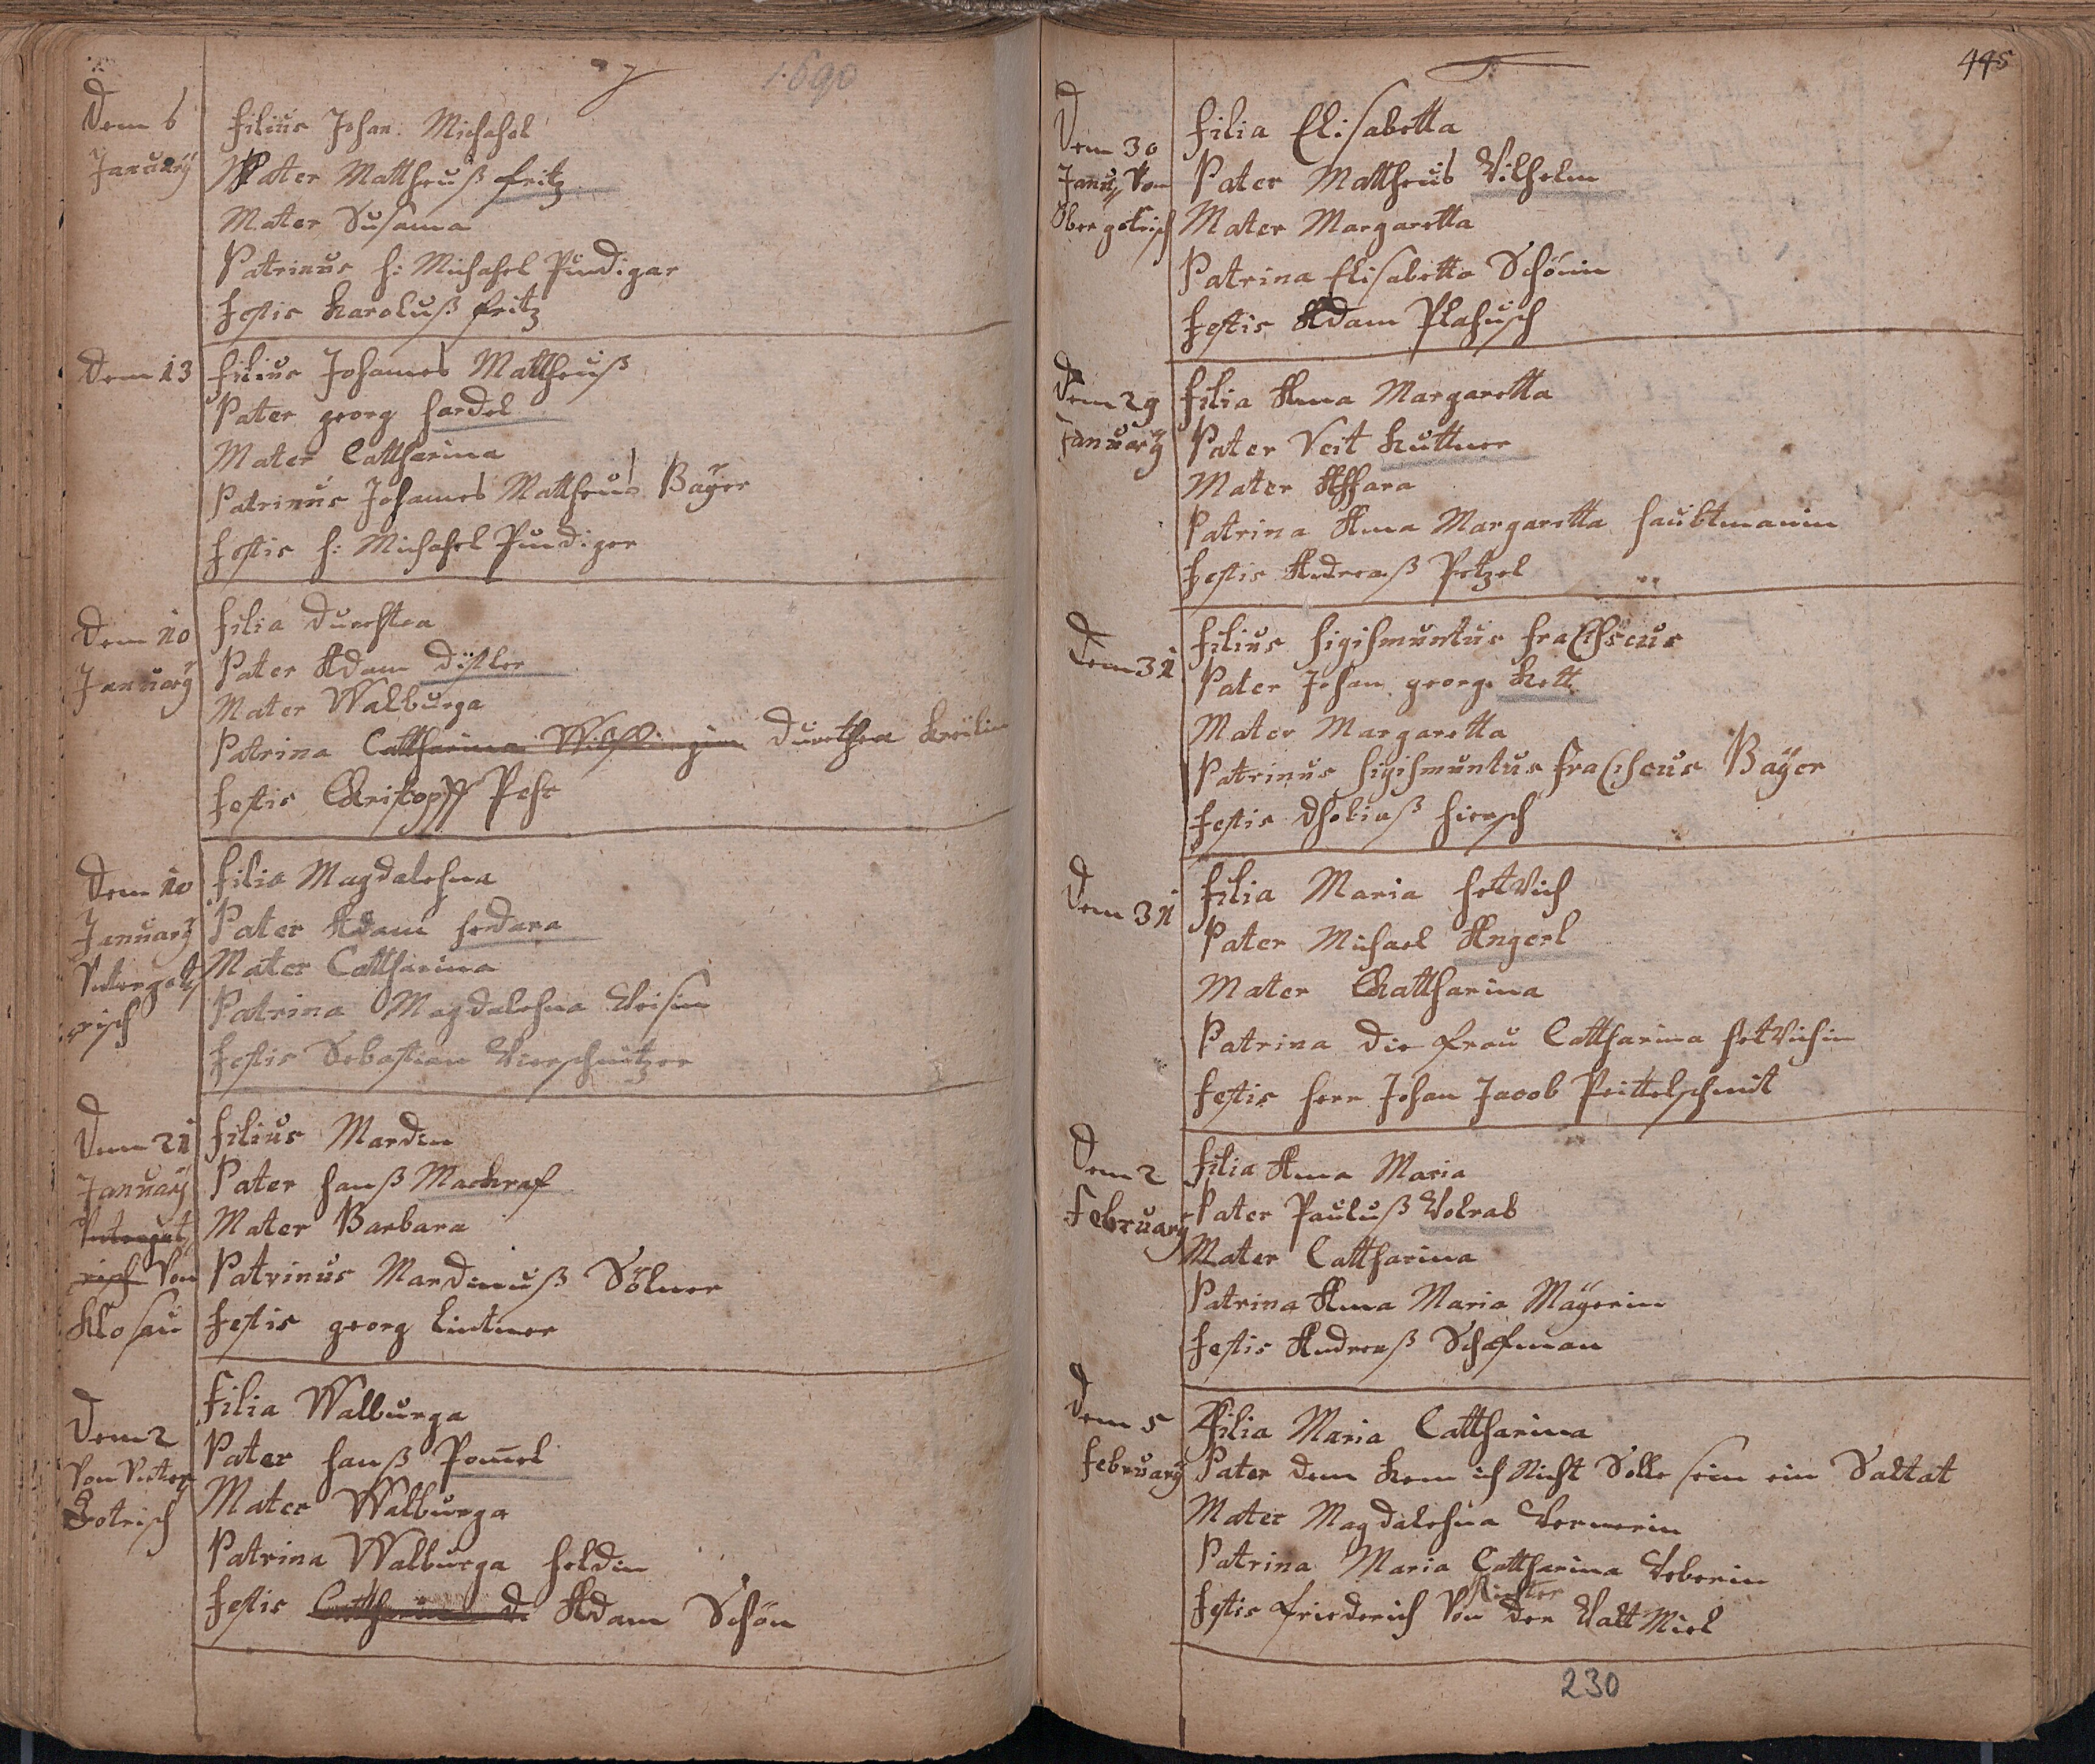 1690
Dem 6
January
Filius Johan. Michahel
Pater Mattheuß Fritz
Mater Susanna
Patrinus H: Michahel Pindigar
Testis Karoluß Fritz
Dem 13
Filius Johannes Mattheuß
Pater georg Hardel
Mater Cattharina
Patrinus Johannes Mattheus Bayer
Testis H: Michahel Pindiger
Dem 10
January
Filia Durethea
Pater Adam Distler
Mater Walburga
Patrina Cattharina Durethea
Testis Christopff
Dem 10
January
Untergott
risch
Filia Magdalehna
Pater Adam Hedara
Mater Cattharina
Patrina Magdalehna Weisin
Testis Sebastian
Dem 21
January
Untergott
risch Von
Klosau
Filius Mardin
Pater Hanß Mackraf
Mater Barbara
Patrinus Mardinuß Sölner
Testis georg Lintner
Dem 2
Von Unter
Gotrisch
Filia Walburga
Pater Hanß Pommel
Mater Walburga
Patrina Walburga Heldin
Testis Adam Schön
445
Dem 30
Januy Von
Obergotrisch
Filia Elisabetta
Pater Mattheus Vilhelm
Mater Margaretta
Patrina Elisabetta Schönin
Testis Adam Plahusch
Dem 29
January
Filia Anna Margaretta
Pater Veit Kuttner
Mater Affara
Patrina Anna Margaretta Haubtmanin
Testis Andreaß Petzel
Dem 31
Filius Sigihmuntus
Pater Johan georg Kett
Mater Margaretta
Patrinus Sigihmuntus Bayer
Testis Thobiaß Hirsch
Dem 31
Filia Maria Hetwich
Pater Michael Angerl
Mater Chattharina
Patrina die Frau Cattharina Hetwichin
Testis Herr Johan Jacob Peittelschmit
Dem 2
February
Filia Anna Maria
Pater Pauluß Volrab
Mater Cattharina
Patrina Anna Maria Mayerin
Testis Andreaß Schafman
Dem 5
February
Filia Maria Cattharina
Pater dem Kem ich Nicht Solle sein ein Saltat
Mater Magdalehna
Patrina Maria Cattharina Weberin
Richter
Testis Friederich Von der Walt Miel
230